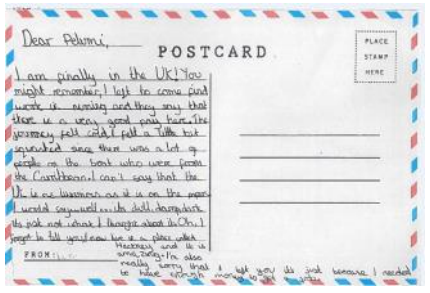 Dear Pelumi,
POSTCARD
PLACE
STAMP
HERE
I am finally in the UK! You
might remember, I left to come find
work in nursing and they say that
there is a very good pay here. The
journey felt cold, I felt a little bit
squashed since there was a lot of
people on the boat who were from
the Caribbean. I can't say that the
UK is as luxurious as it is on the
I would say...well... its dull, damp, dark
its just not what I thought about it. Oh, I
forgot to tell you I now live in a place called
Hackney and it is
FROM:
amazing. I'm also
really sorry that I left you its just because I needed
to have enough money to get a